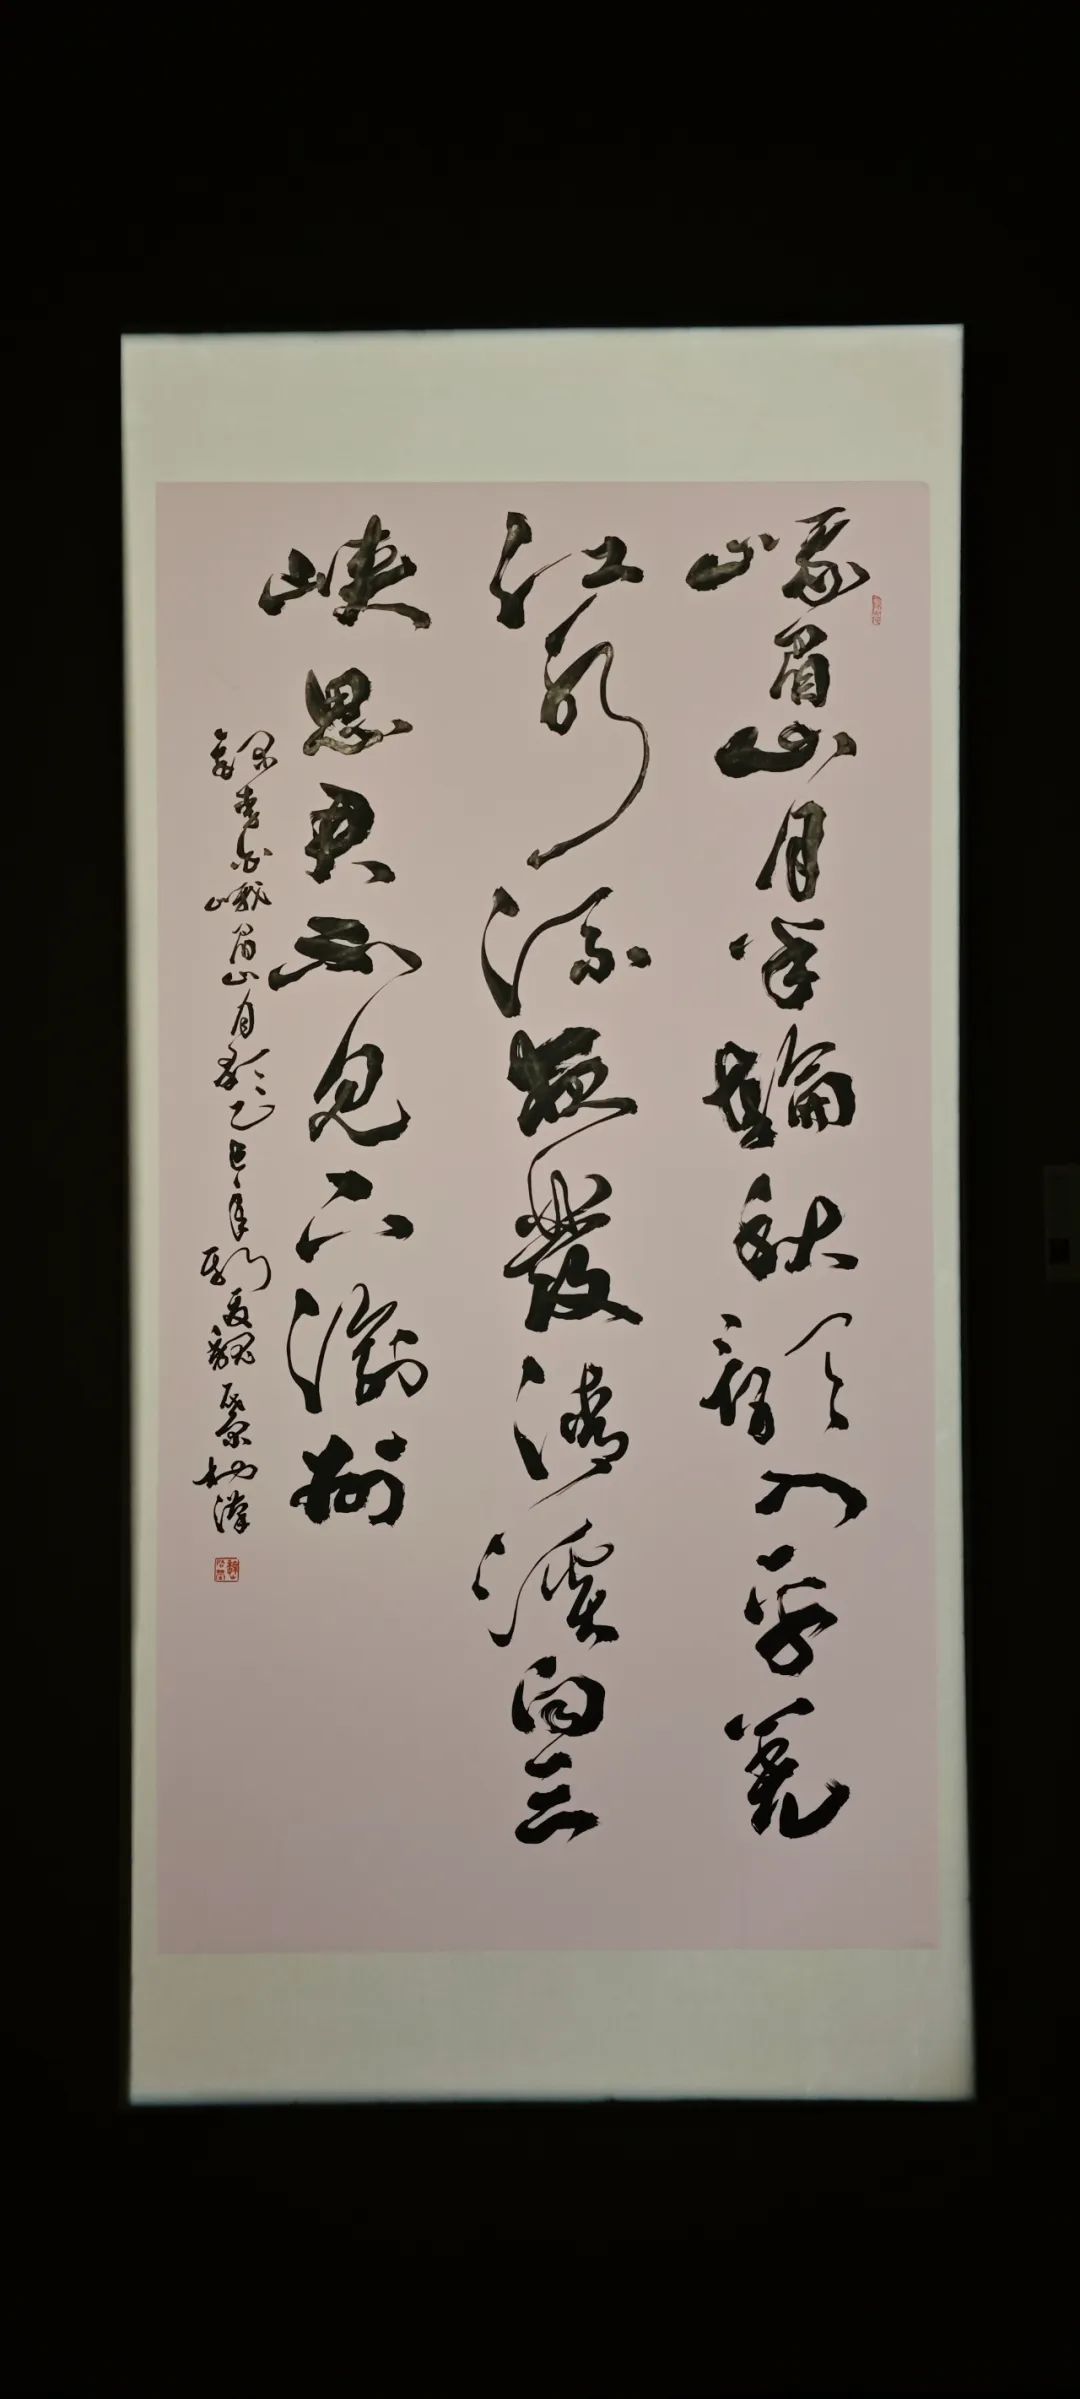 峨眉山月半輪秋影入平羌
江水流夜發清溪向三
峽思君不見下渝州
錄李白峨眉山月歌乙巳年夏魏